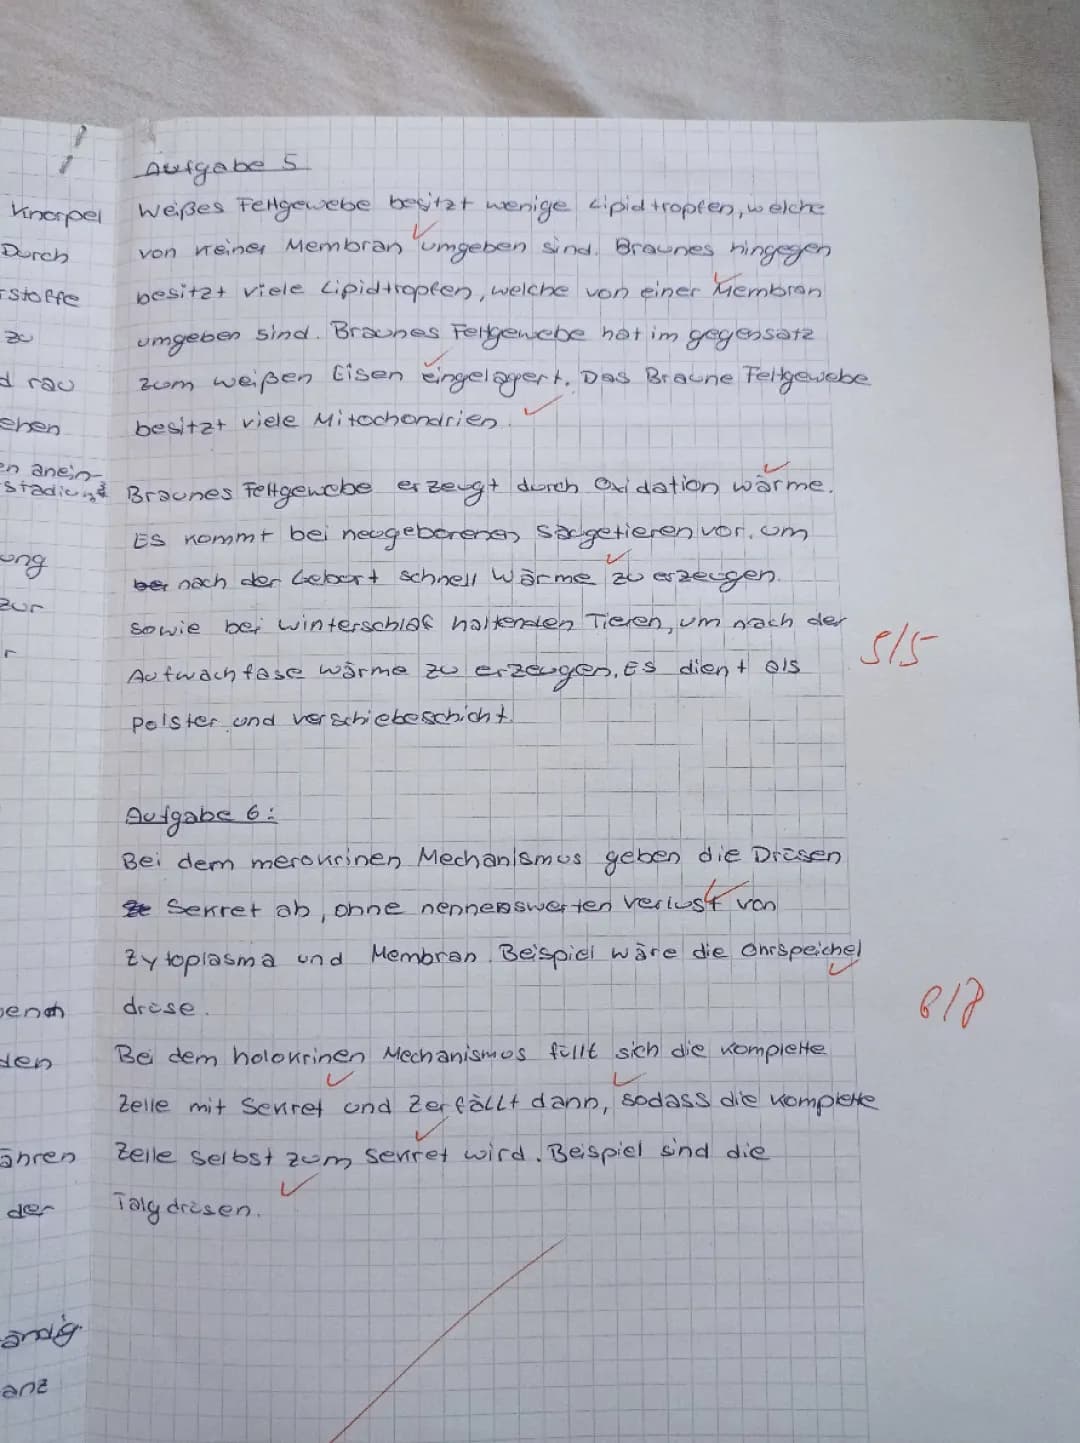 Aufgabe 5
Weißes Fettgewebe besitzt wenige Lipidtropfen, welche
von keiner Membran umgeben sind. Braunes hingegen
besitzt viele Lipidtropfen, welche von einer Membran
umgeben sind. Braunes Fettgewebe hat im gegensatz
zum weißen Eisen eingelagert. Das Braune Fettgewebe
besitzt viele Mitochondrien.
Braunes Fettgewebe erzeugt durch Oxidation wärme.
Es kommt bei neugeborenen Säugetieren vor, um
nach der Geburt schnell Wärme zu erzeugen.
sowie bei winterschlaf haltenden Tieren, um nach der
Aufwachfase wärme zu erzeugen. Es dient als
Polster und verschiebeschicht.
5/5
Aufgabe 6:
Bei dem merokrinen Mechanismus geben die Drüsen
Sekret ab, ohne nennenswerten verlust von
Zytoplasma und Membran. Beispiel wäre die Ohrspeichel
drüse.
Bei dem holokrinen Mechanismus füllt sich die komplette
Zelle mit Sekret und Zerfällt dann, sodass die komplette
Zelle selbst zum Sekret wird. Beispiel sind die
Talgdrüsen.
Knorpel
Durch
rstoffe
zu
d rau
ehen
en anein-
ung
zur
r
den
ähren
der
ändig
anz